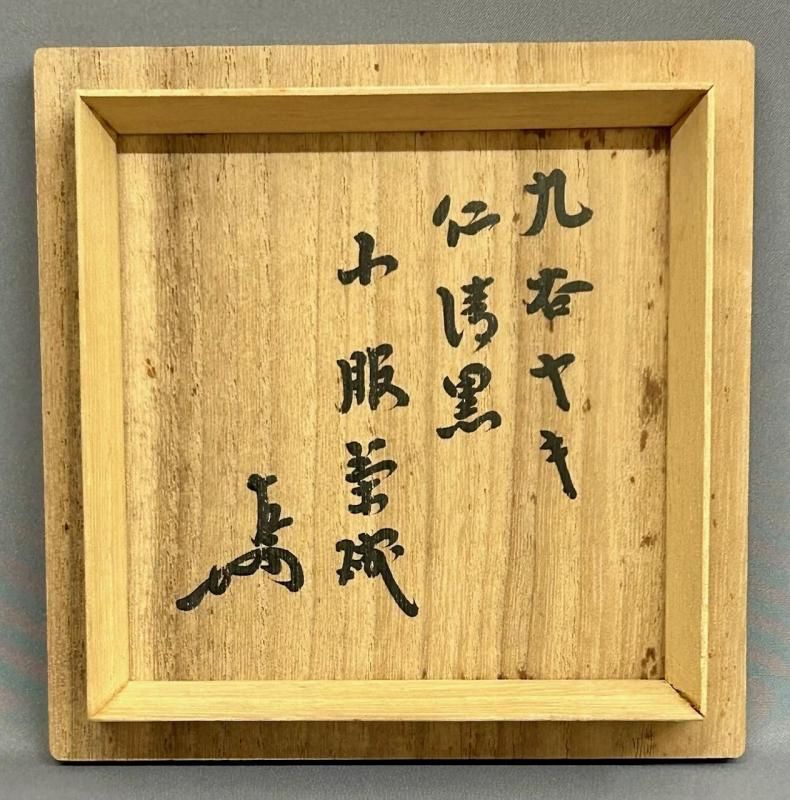 九谷ヤキ
仁清黒
小服茶碗